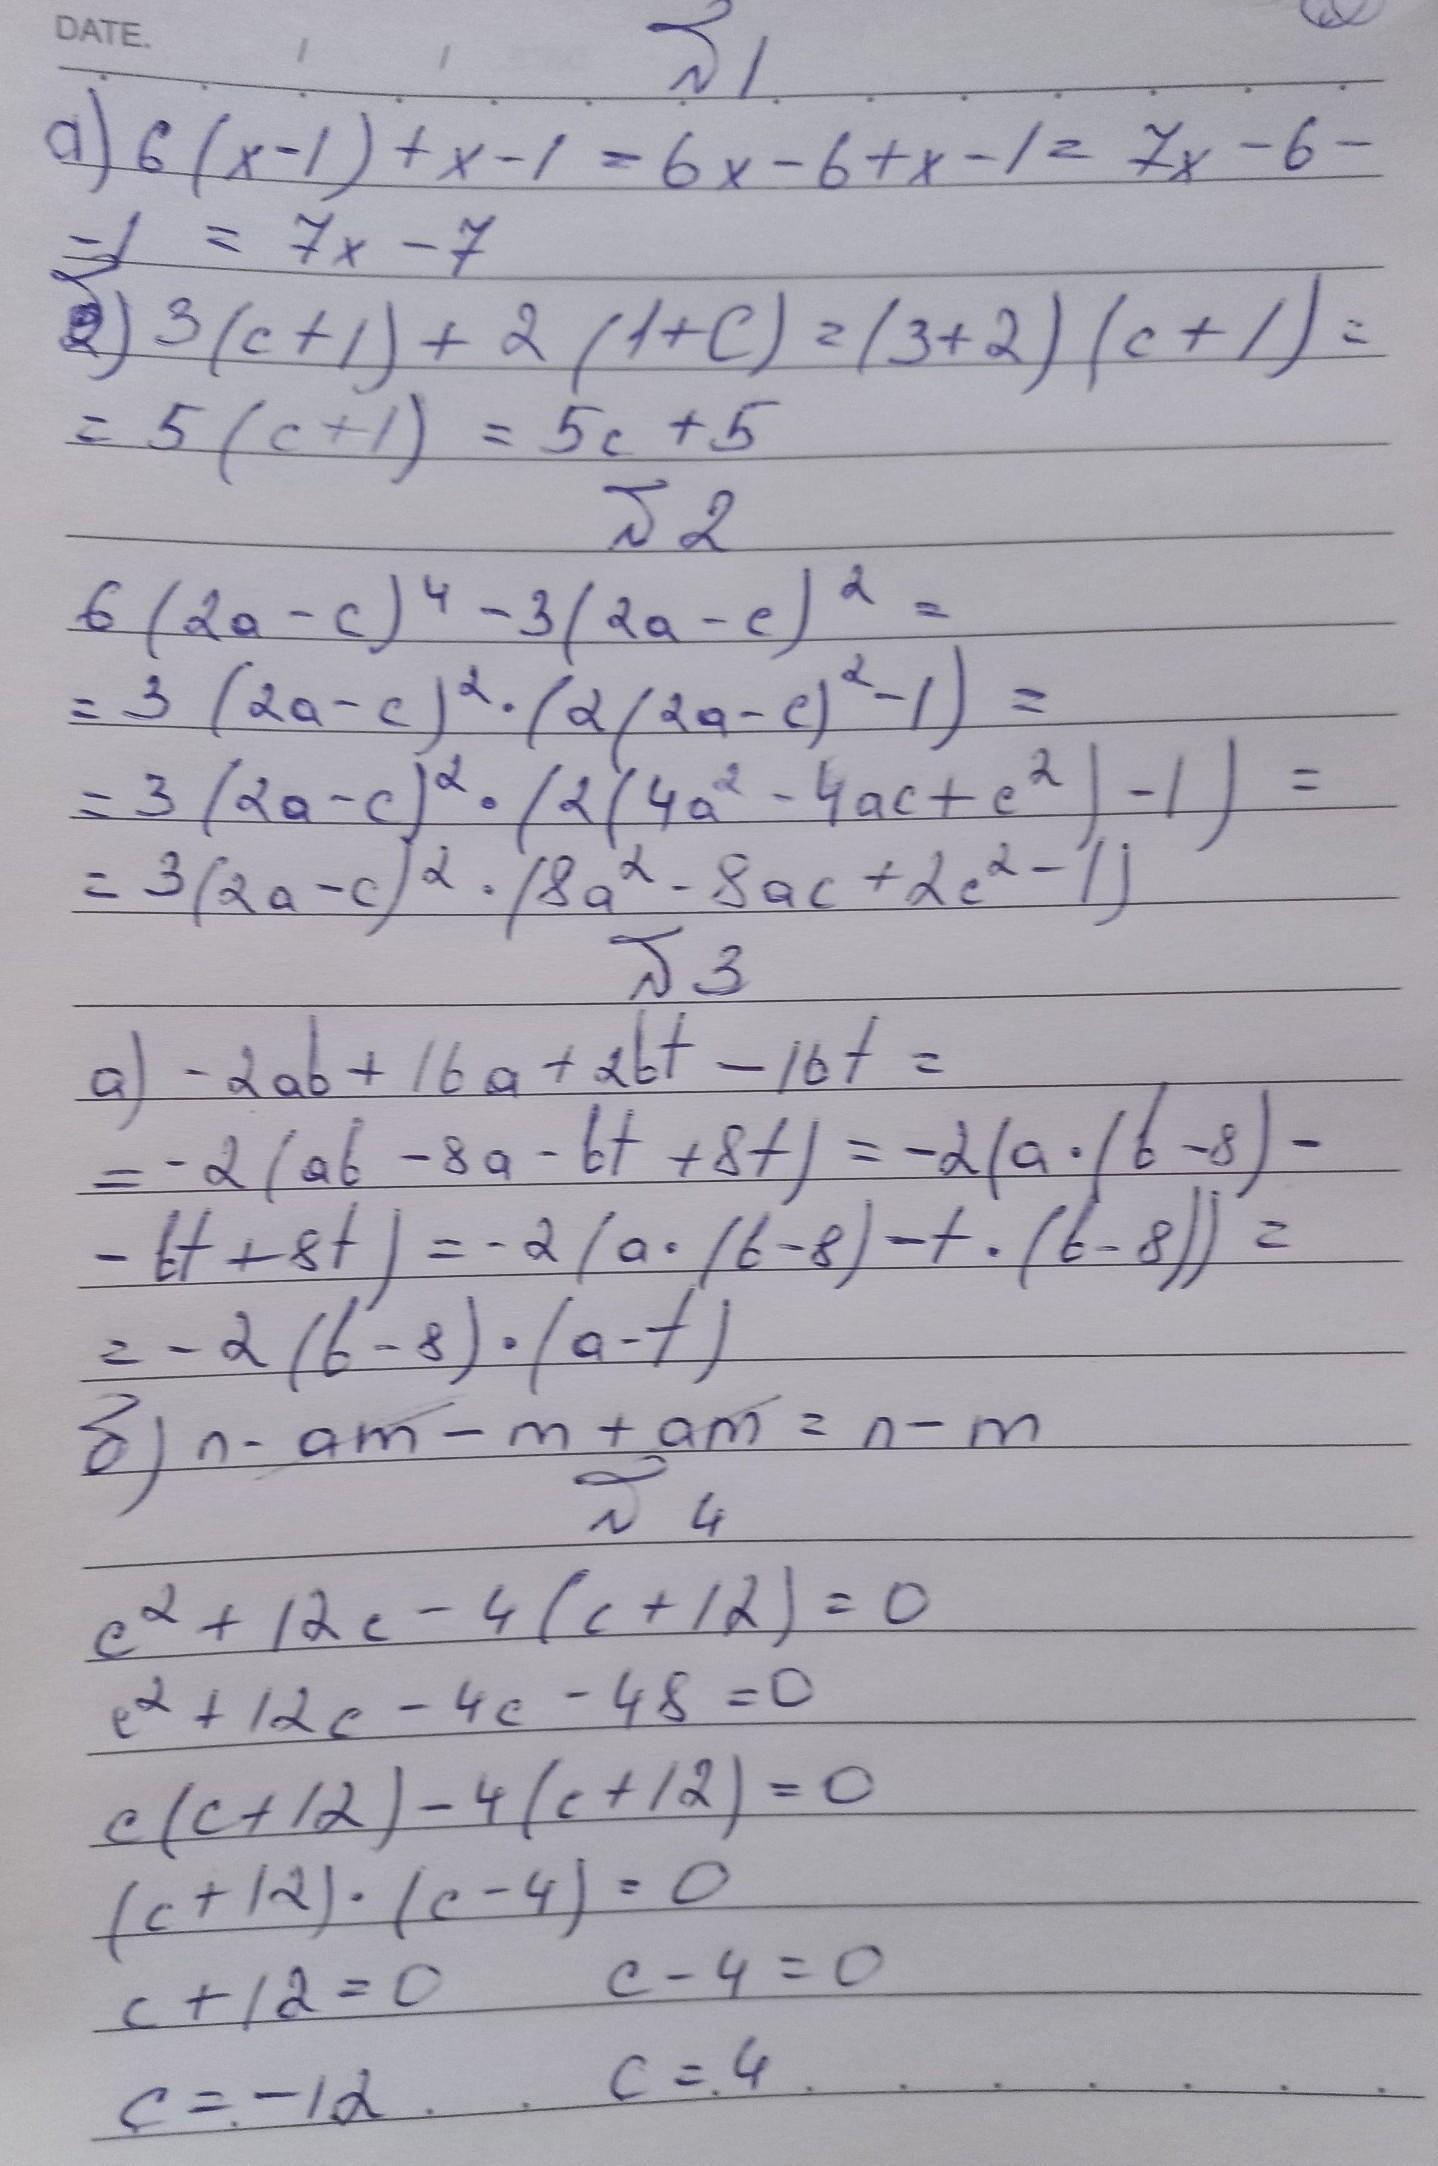 DATE.
№1
а) 6(x-1)+x-1=6x-6+x-1= 7x-6-
-1 = 7x-7
б) 3(c+1)+2(1+c)=(3+2)(c+1)=
= 5(c+1) = 5c+5
№2
6(2a-c)⁴-3(2a-c)²=
=3(2a-c)²·(2(2a-c)²-1)=
=3(2a-c)²·(2(4a²-4ac+c²)-1)=
=3(2a-c)²·(8a²-8ac+2c²-1)
№3
а) -2ab+16a+2bt-16t=
=-2(ab-8a-bt+8t)=-2(a·(b-8)-
-bt+8t)=-2(a·(b-8)-t·(b-8))=
=-2(b-8)·(a-t)
б) n-am-m+am=n-m
№4
c²+12c-4(c+12)=0
c²+12c-4c-48=0
c(c+12)-4(c+12)=0
(c+12)·(c-4)=0
c+12=0 c-4=0
c=-12 c=4